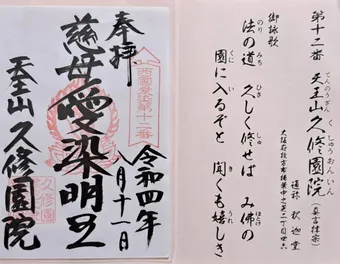 第十二番 天王山久修園院（真言律宗）
てんのうざん くしゅうおんいん
通称 釈迦堂
大阪府枚方市楠葉中之芝二丁目四六
御詠歌
法の道 久しく修せば み佛の
のり みち ひさ しゅ ほとけ
園に入るぞと 聞くも嬉しき
くに い き うれ
令和四年
八月十一日
西國愛染第十二番
奉拝
慈母愛染明王
天王山 久修園院